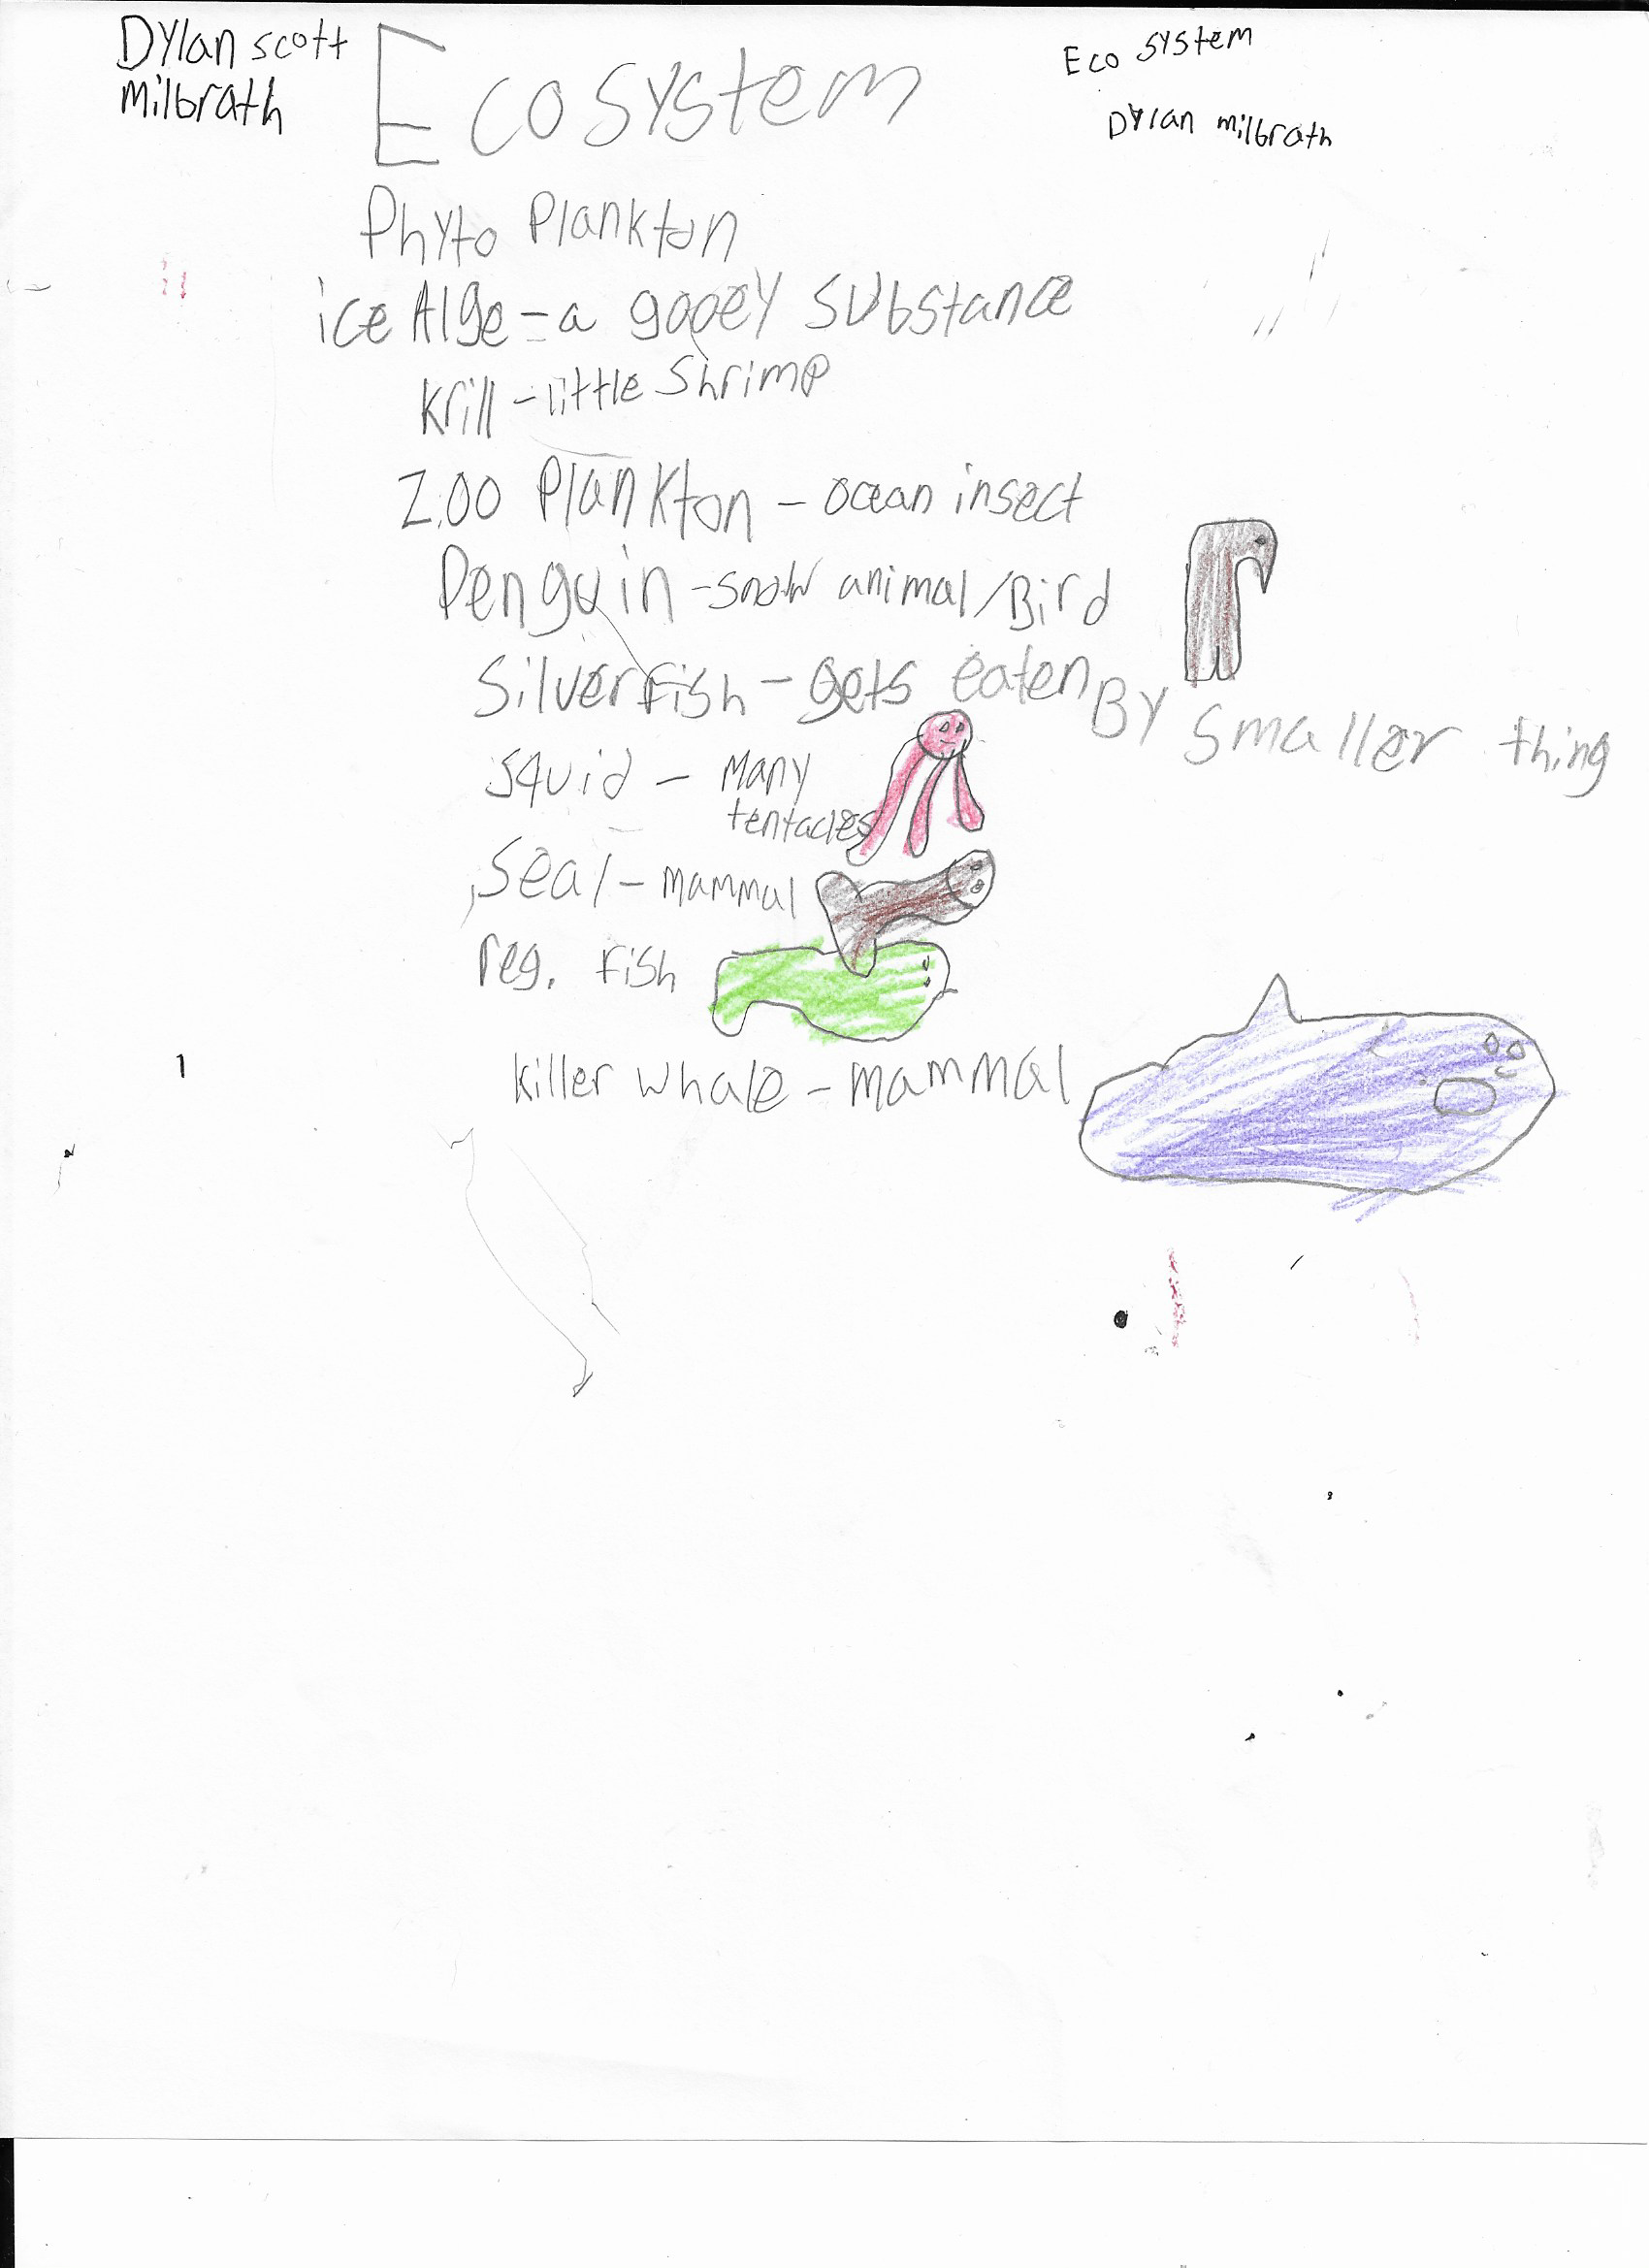 Dylan scott
milbrath
Ecosystem
Eco system
Dylan milbrath
Phyto Plankton
ice Alge - a gooey substance
Krill - little Shrimp
Zoo Plankton - ocean insect
Penguin - snow animal/Bird
Silver Fish - gets eaten BY smaller thing
squid - Many
tentacles
Seal - mammal
reg. fish
killer whale - mammal